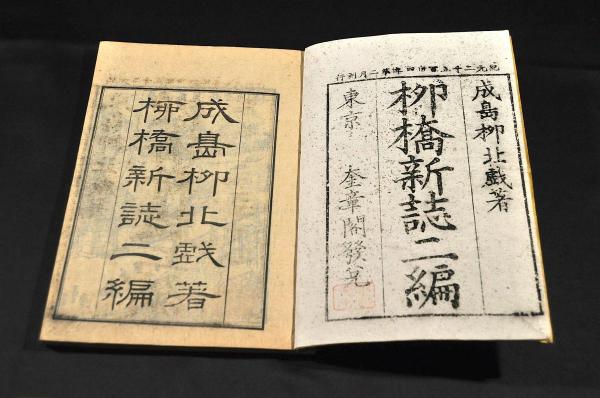 紀元二千五百卅四年第二月刊行
成島柳北戯著
柳橋新誌二編
東京 奎章閣發兌
成島柳北戯著
柳橋新誌二編